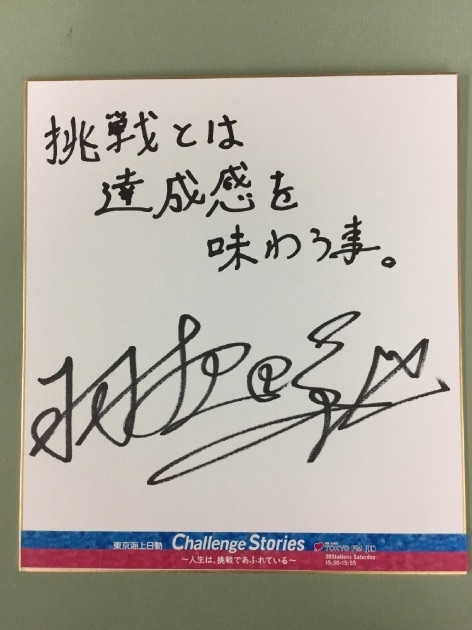 挑戦とは
達成感を
味わう事。
東京海上日動 Challenge Stories
〜人生は、挑戦であふれている〜
TOKYO FM
38Stations Saturday
15:30-15:55